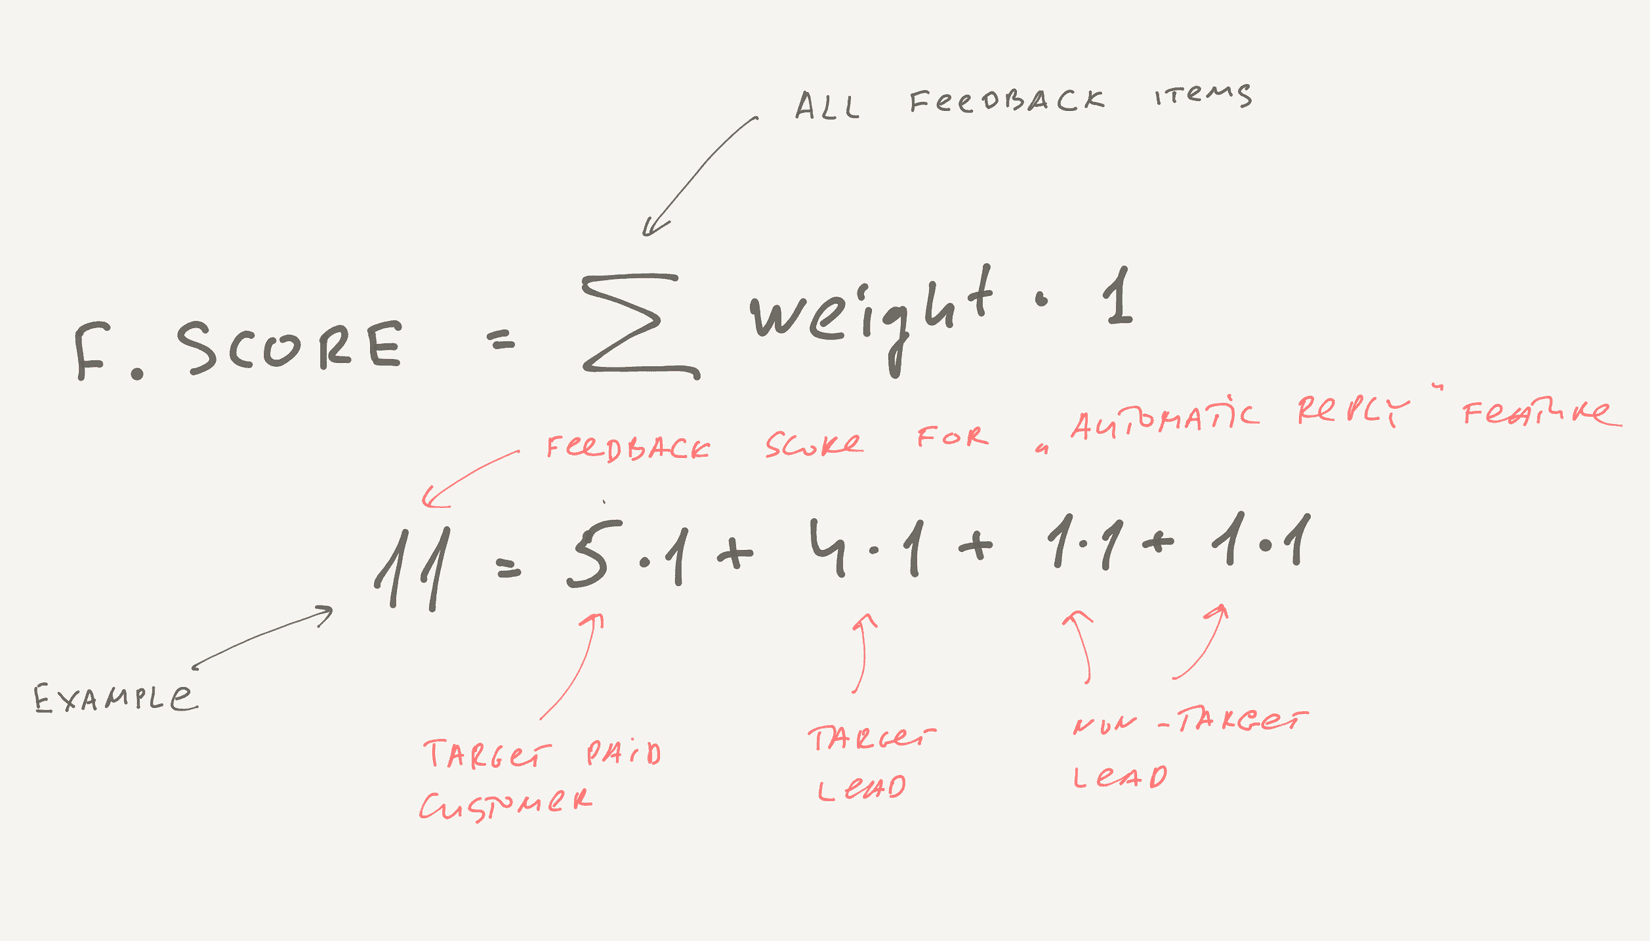 ALL FEEDBACK ITEMS
F. SCORE = ∑ weight · 1
FEEDBACK SCORE FOR „AUTOMATIC REPLY" FEATURE
11 = 5·1 + 4·1 + 1·1 + 1·1
EXAMPLE
TARGET PAID
CUSTOMER
TARGET
LEAD
NON-TARGET
LEAD